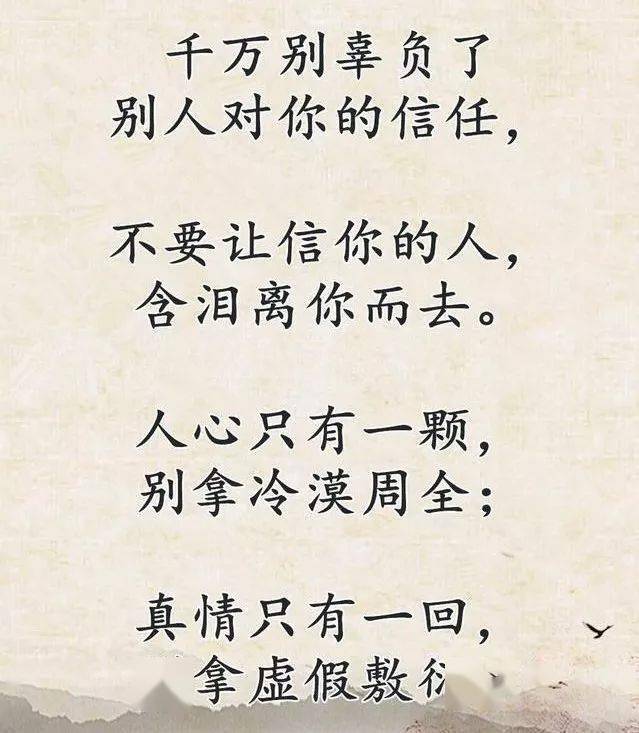 千万别辜负了
别人对你的信任，
不要让信你的人，
含泪离你而去。
人心只有一颗，
别拿冷漠周全；
真情只有一回，
拿虚假敷衍